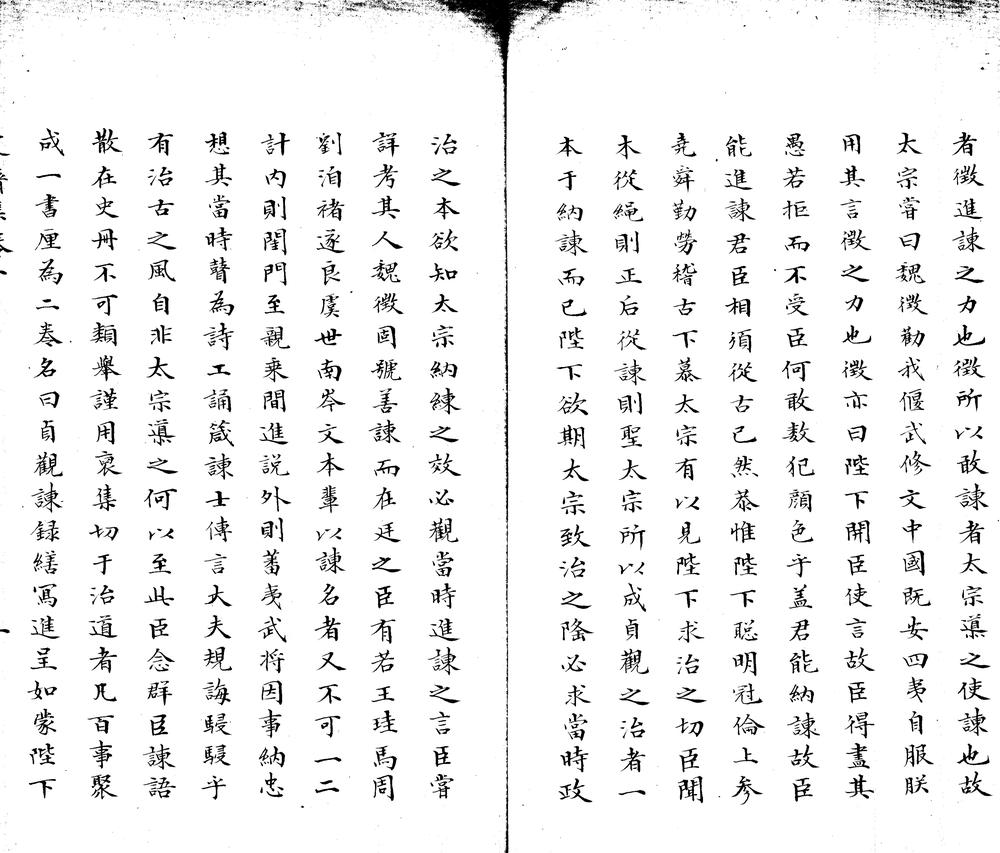 者徵進諫之力也徵所以敢諫者太宗導之使諫也故
太宗嘗曰魏徵勸我偃武修文中國既安四夷自服朕
用其言徵之力也徵亦曰陛下開臣使言故臣得盡其
愚若拒而不受臣何敢數犯顏色乎盖君能納諫故臣
能進諫君臣相須從古已然恭惟陛下聪明冠倫上參
堯舜勤勞稽古下慕太宗有以見陛下求治之切臣聞
木從繩則正后從諫則聖太宗所以成貞觀之治者一
本于納諫而已陛下欲期太宗致治之隆必求當時政
治之本欲知太宗納練之效必觀當時進諫之言臣嘗
詳考其人魏徵固號善諫而在廷之臣有若王珪馬周
劉洎褚遂良虞世南岑文本輩以諫名者又不可一二
計内則閨門至親乗間進説外則蕃夷武將因事納忠
想其當時瞽為詩工誦箴諫士傳言大夫規誨駸駸乎
有治古之風自非太宗導之何以至此臣念群臣諫語
散在史冊不可類舉謹用裒集切于治道者凡百事聚
成一書厘為二巻名曰貞觀諫録繕寫進呈如蒙陛下